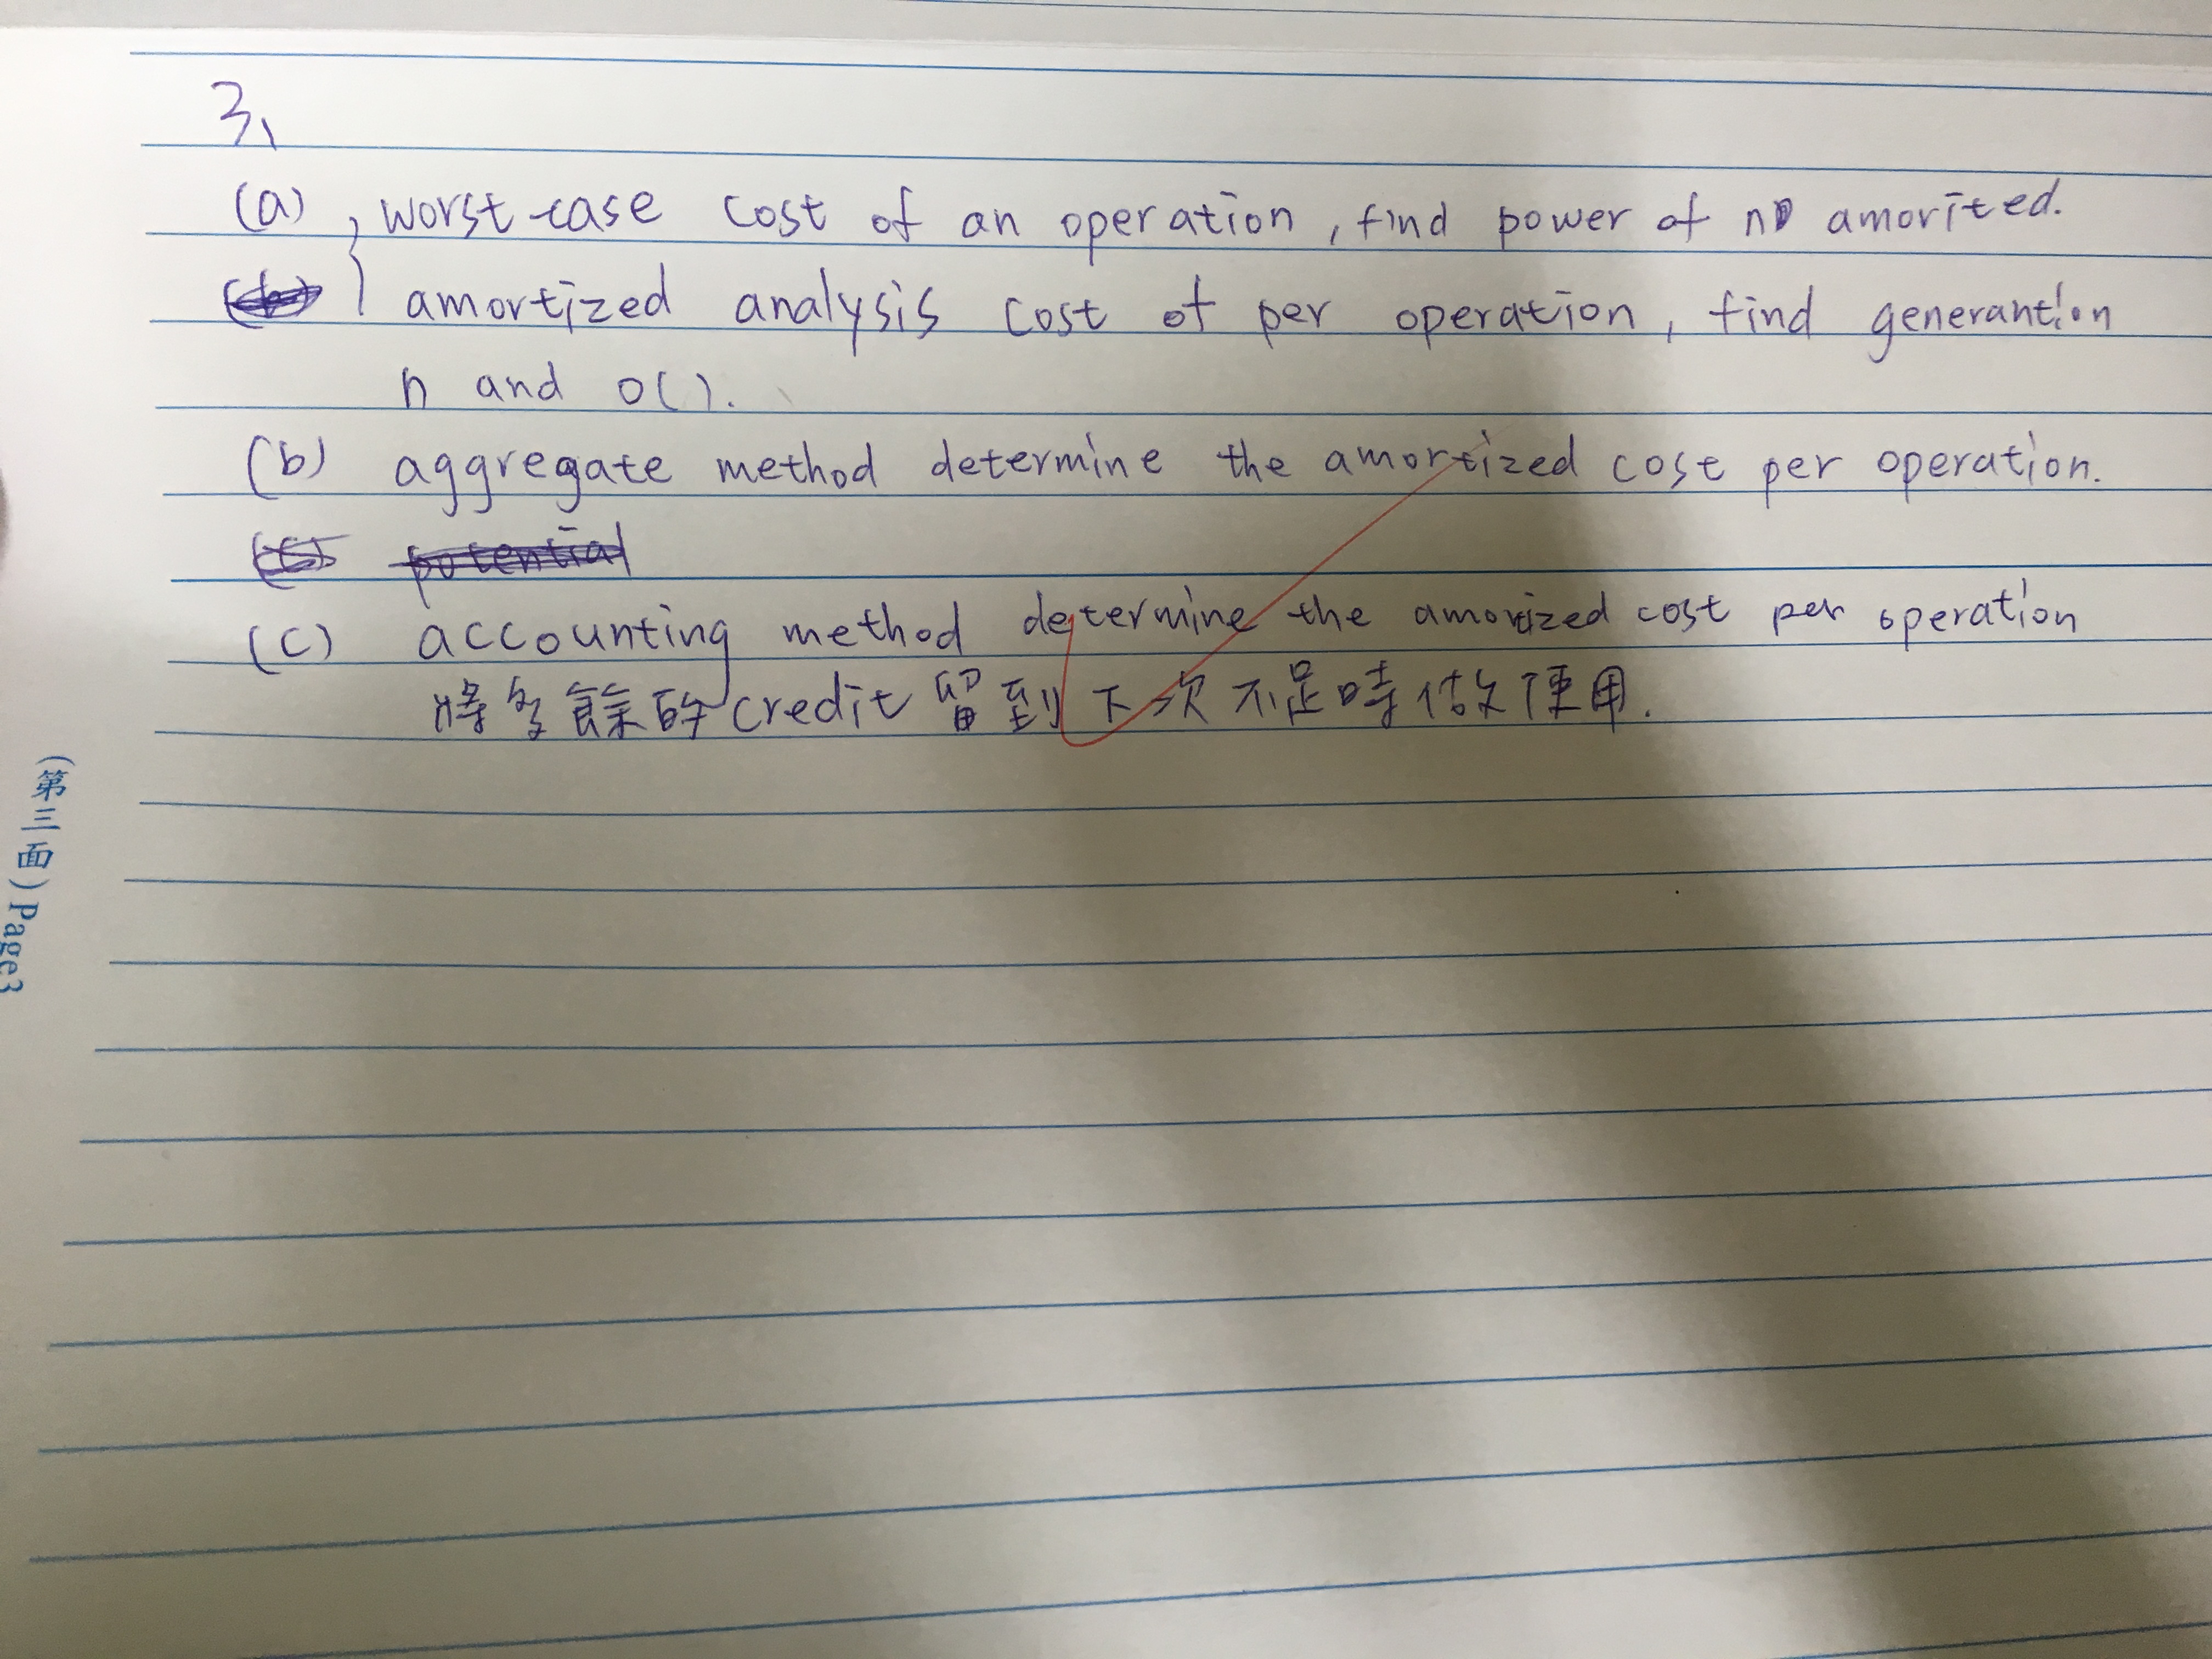 3、
(a) , worst-case cost of an operation, find power of n amorited.
amortized analysis cost of per operation, find generantion
n and O( ).
(b) aggregate method determine the amortized cost per operation.
potential
(c) accounting method determine the amorized cost per operation
將多餘的credit留到下次不足時做使用.
(第三面) Page3